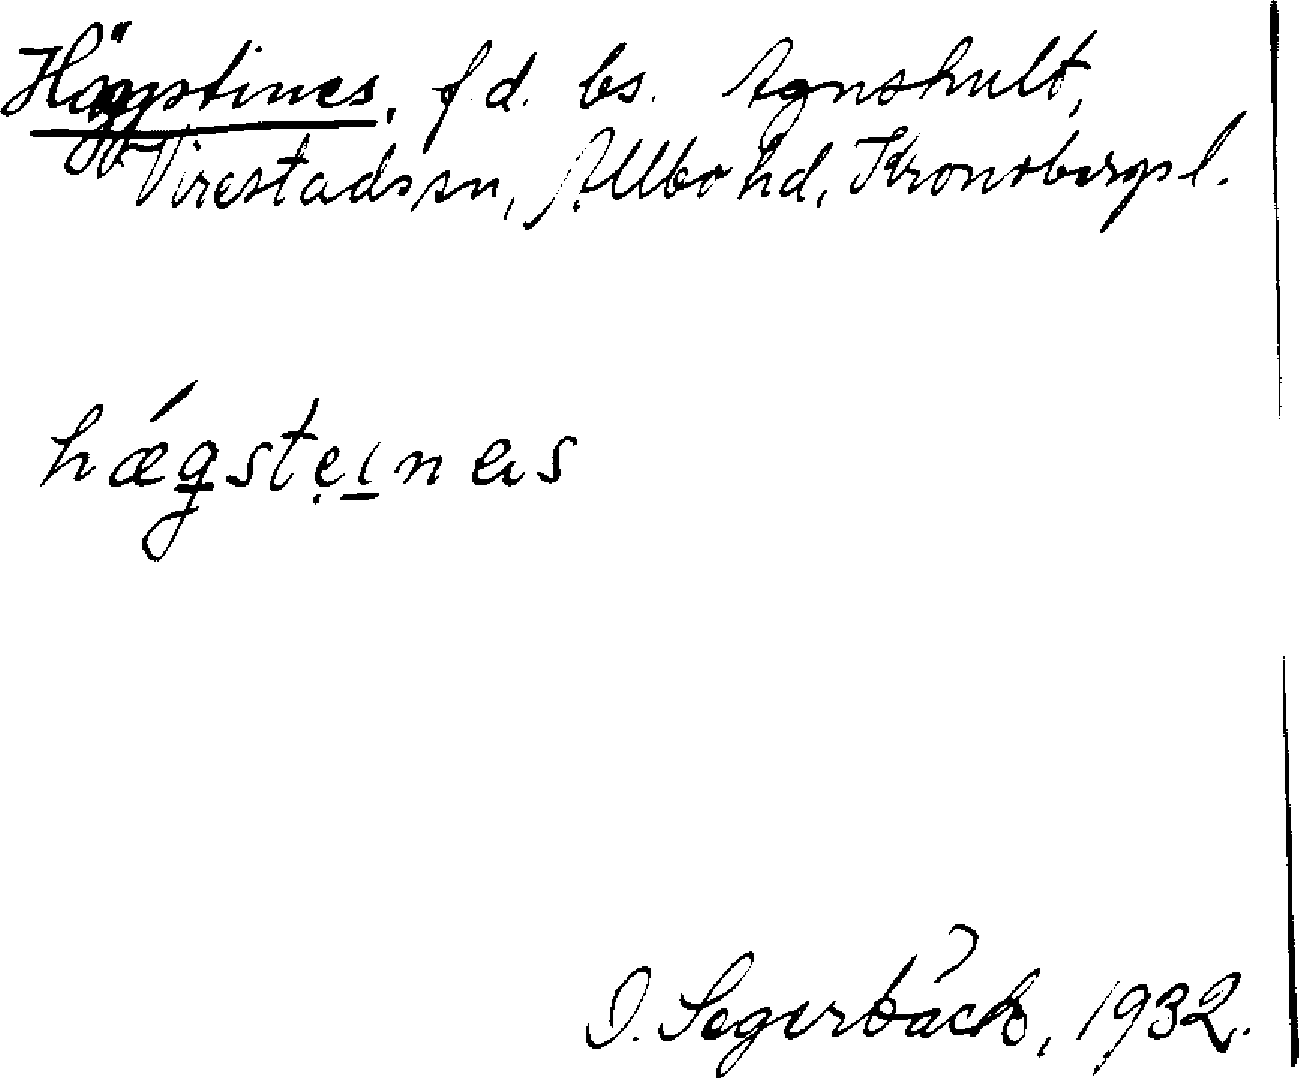 Häggstines, f.d. bs. Agnshult,
Virestads sn, Allbo hd, Kronobergs l.
hǽgstẹinas
O. Segerbäck, 1932.